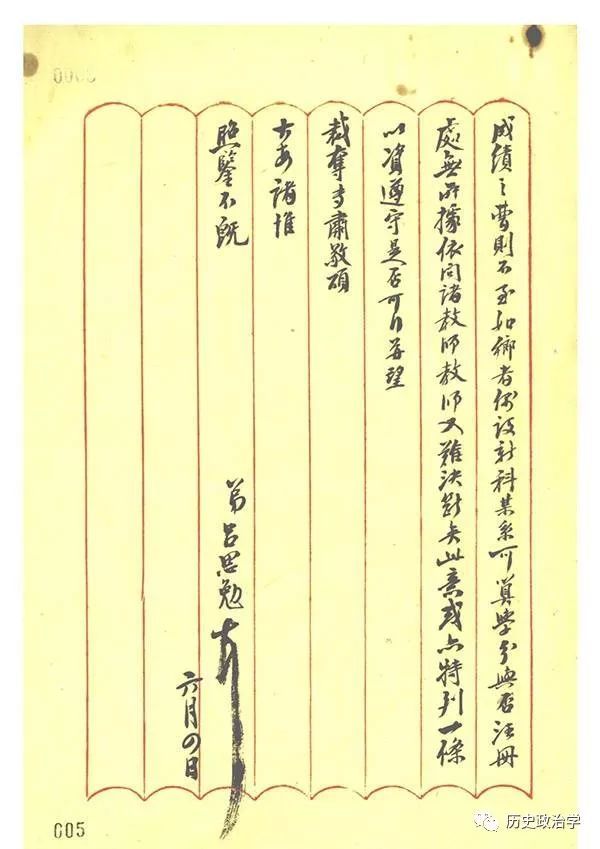 成績之曹則不至如鄉者倘設新科某系可算學分與否注冊
處無所據依問諸教師教師又難決斷矣此意或亦特列一條
以資遵守是否可行并望
裁奪專肅敬頌
大安諸惟
照鑒不既
弟呂思勉
六月四日
005
历史政治学